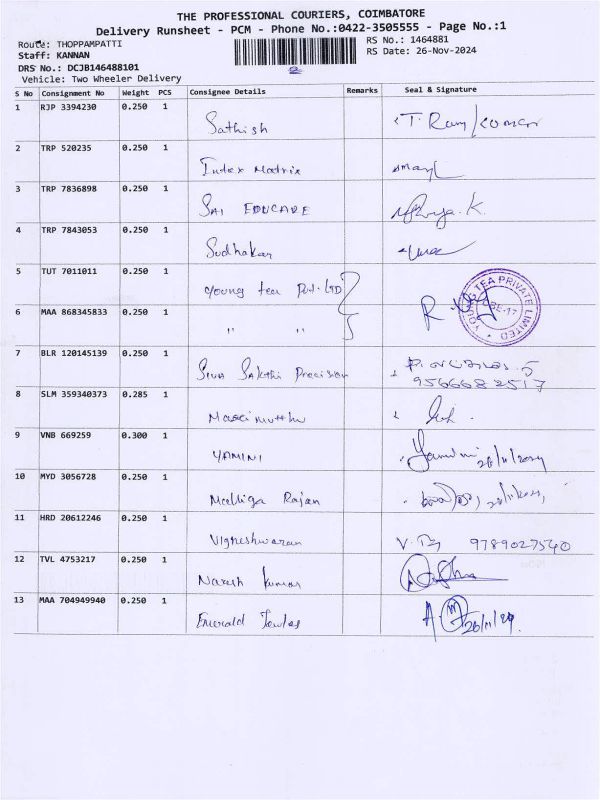 THE PROFESSIONAL COURIERS, COIMBATORE
Delivery Runsheet - PCM - Phone No.:0422-3505555 - Page No.:1
Route: THOPPAMPATTI
RS No.: 1464881
Staff: KANNAN
RS Date: 26-Nov-2024
DRS No.: DCJB146488101
Vehicle: Two Wheeler Delivery
S No Consignment No Weight PCS Consignee Details Remarks Seal & Signature
1 RJP 3394230 0.250 1
Sathish
2 TRP 520235 0.250 1
Index Matrix
3 TRP 7836898 0.250 1
SAI EDUCARE
4 TRP 7843053 0.250 1
Sudhakar
5 TUT 7011011 0.250 1
Young tea Pvt. LTD
YOUNG TEA PRIVATE LIMITED
6 MAA 868345833 0.250 1
" "
7 BLR 120145139 0.250 1
Siva Sakthi Precision
9566682517
8 SLM 359340373 0.285 1
Maasimuthu
9 VNB 669259 0.300 1
YAMINI
Yamini 26/11/2024
10 MYD 3056728 0.250 1
Malliga Rajan
11 HRD 20612246 0.250 1
Vigneshwaran
9789027540
12 TVL 4753217 0.250 1
Naresh Kumar
13 MAA 704949940 0.250 1
Emerald Jewles
26/11/24.